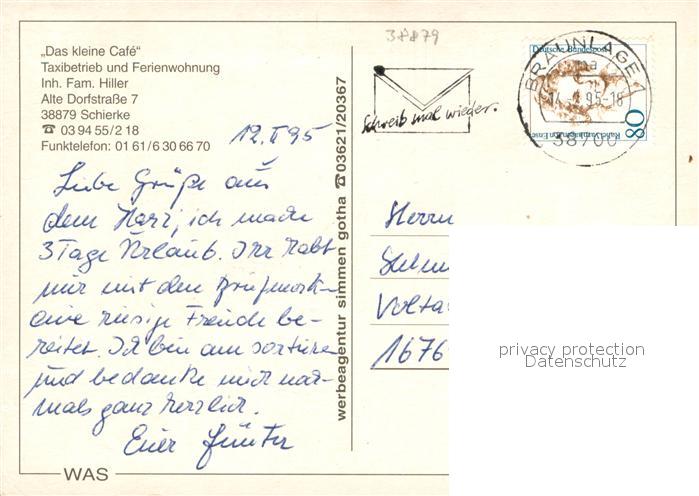 38879
„Das kleine Café“
Taxibetrieb und Ferienwohnung
Inh. Fam. Hiller
Alte Dorfstraße 7
38879 Schierke
☎ 03 94 55/2 18
Funktelefon: 01 61/6 30 66 70
12.II 95
Liebe Grüße aus
dem Harz, ich mache
3 Tage Urlaub. Ihr habt
mir mit den Briefmark-
eine riesige Freude be-
reitet. Ich bin am sortieren
und bedanke mich noch-
mals ganz herzlich.
Euer Günter
WAS
werbeagentur simmen gotha ☎03621/20367
Schreib mal wieder.
BRAUNLAGE 1
ma
14.-2.95-18
38700
Deutsche Bundespost
80
Rahel Varnhagen von Ense
Herrn
Volta
1676
privacy protection
Datenschutz